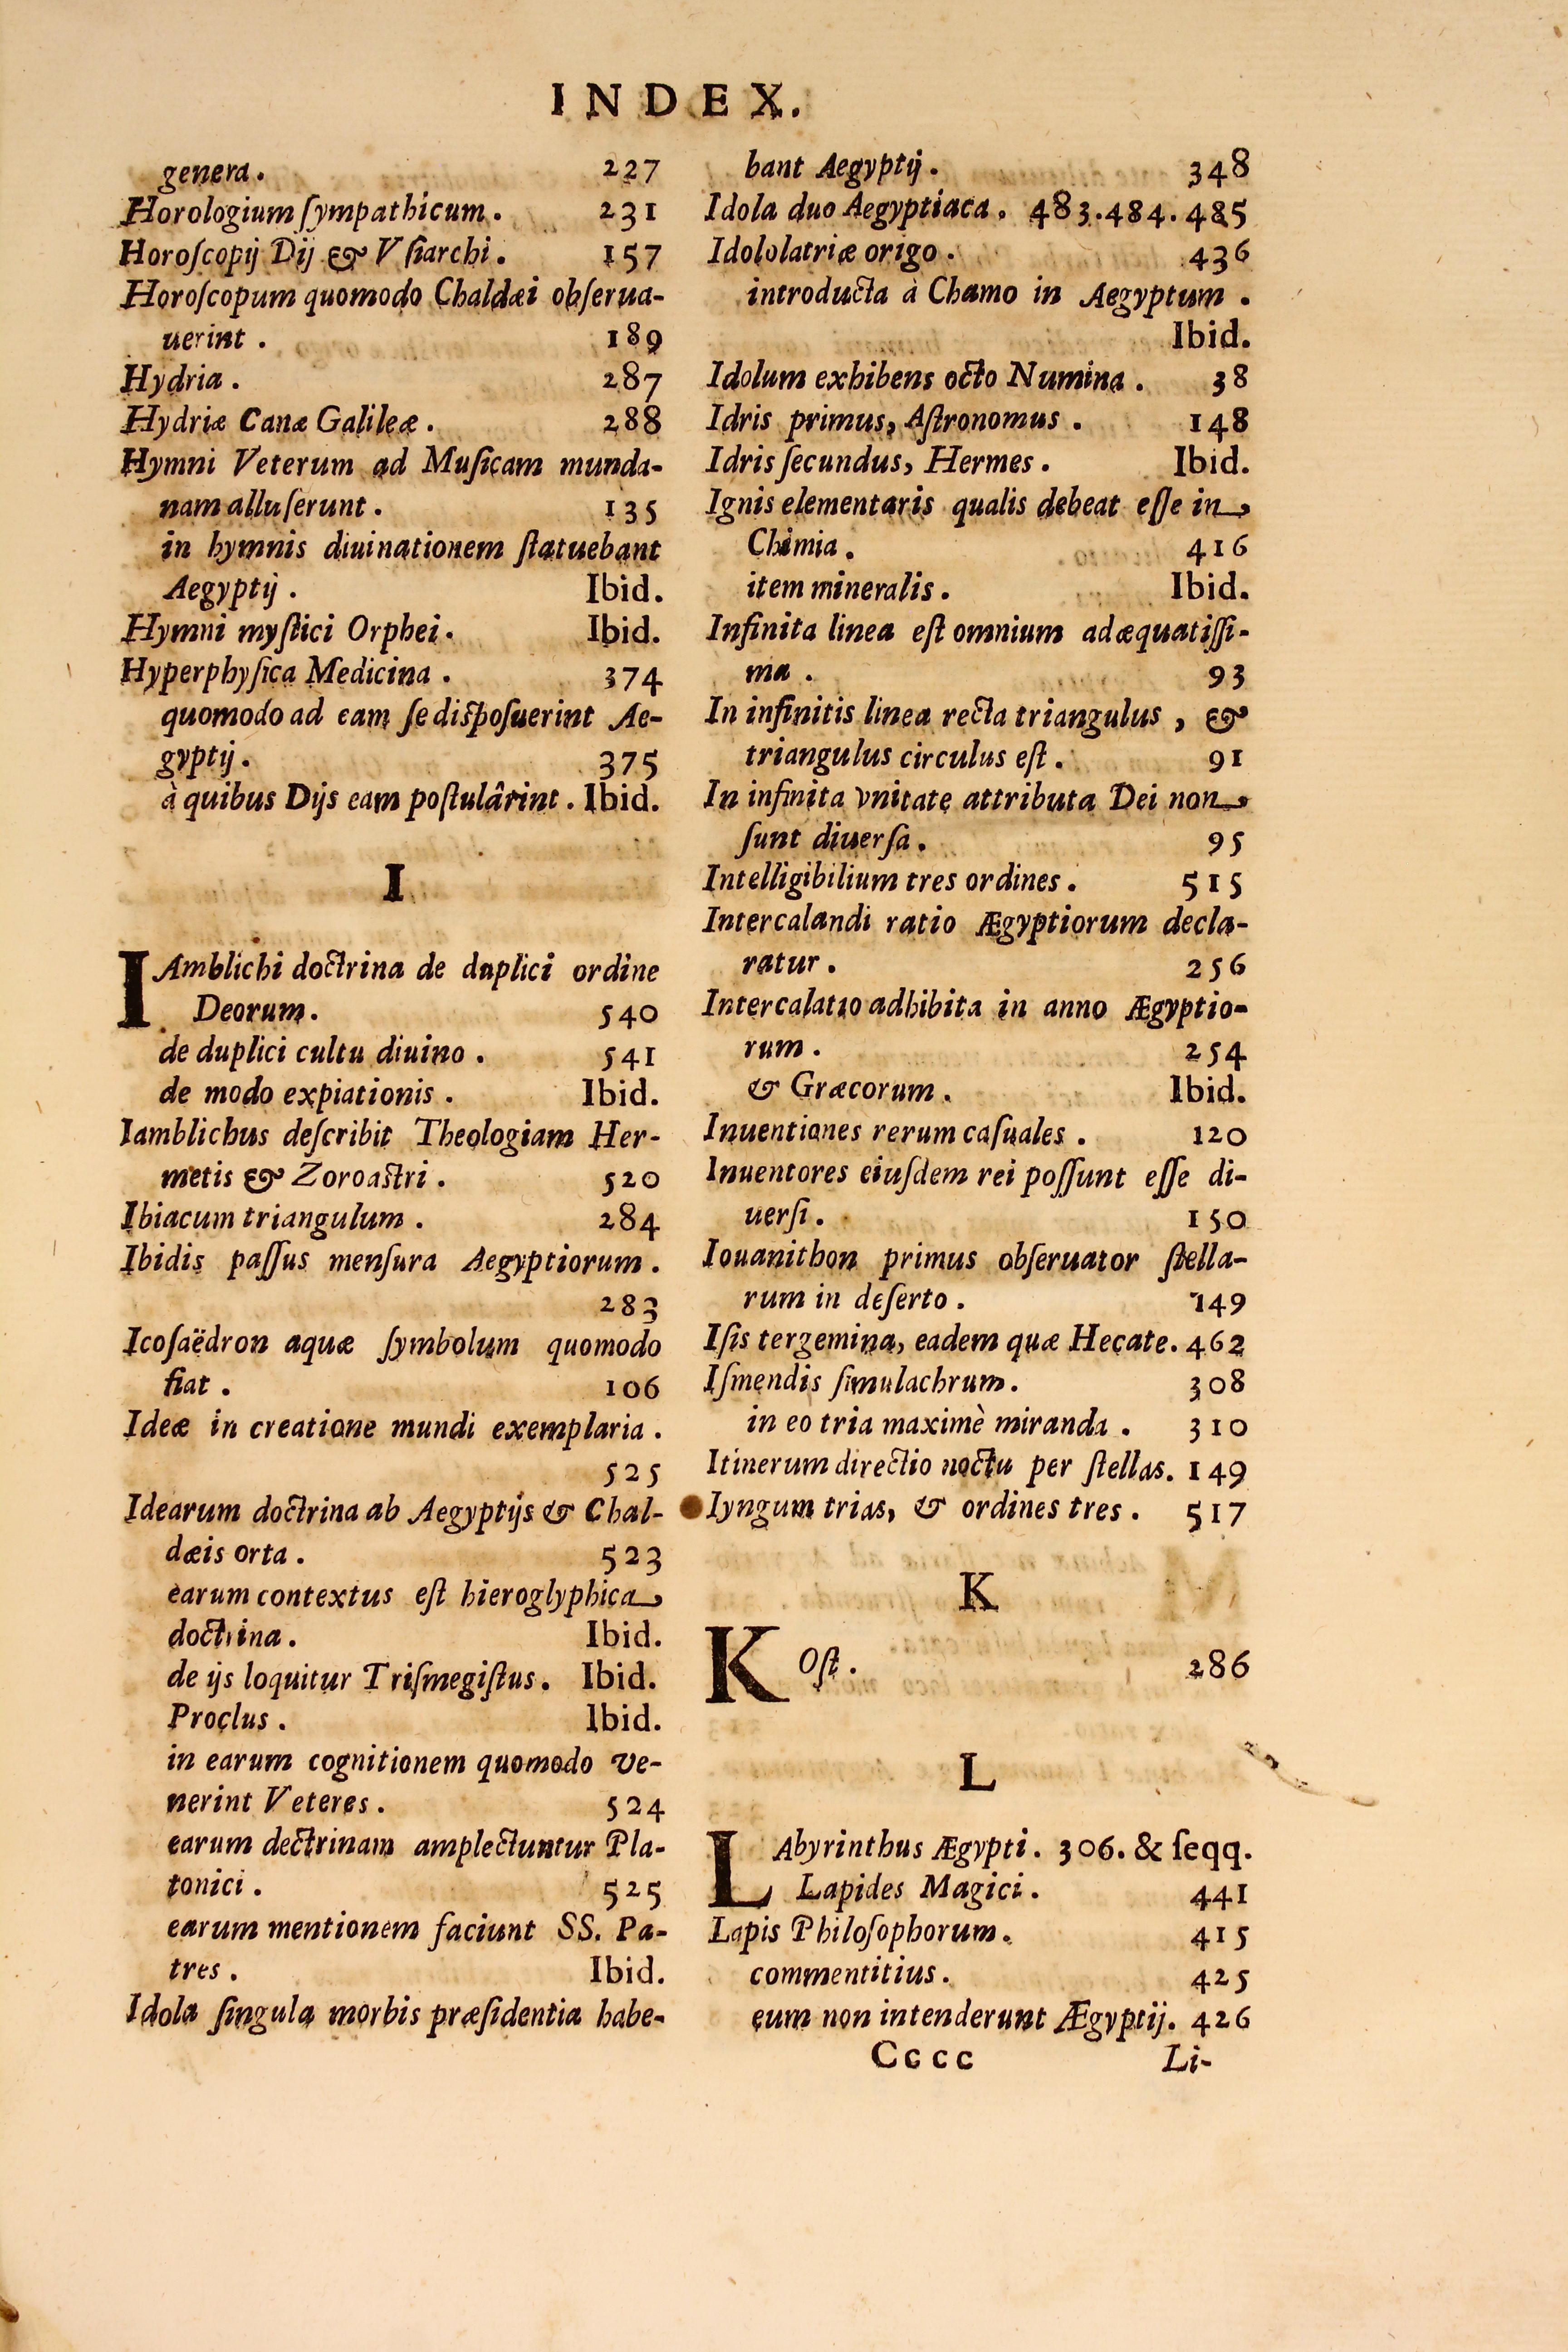 INDEX.
genera. 227
Horologium ſympathicum. 231
Horoſcopij Dij & Vſiarchi. 157
Horoſcopum quomodo Chaldæi obſerua-
uerint. 189
Hydria. 287
Hydriæ Canæ Galileæ. 288
Hymni Veterum ad Muſicam munda-
nam alluſerunt. 135
in hymnis diuinationem ſtatuebant
Aegyptij. Ibid.
Hymni myſtici Orphei. Ibid.
Hyperphyſica Medicina. 374
quomodo ad eam ſe diſpoſuerint Ae-
gyptij. 375
à quibus Dijs eam poſtulârint. Ibid.
I
IAmblichi doctrina de duplici ordine
Deorum. 540
de duplici cultu diuino. 541
de modo expiationis. Ibid.
Iamblichus deſcribit Theologiam Her-
metis & Zoroaſtri. 520
Ibiacum triangulum. 284
Ibidis paſſus menſura Aegyptiorum.
283
Icoſaëdron aquæ ſymbolum quomodo
fiat. 106
Ideæ in creatione mundi exemplaria.
525
Idearum doctrina ab Aegyptijs & Chal-
dæis orta. 523
earum contextus eſt hieroglyphica
doctrina. Ibid.
de ijs loquitur Triſmegiſtus. Ibid.
Proclus. Ibid.
in earum cognitionem quomodo ve-
nerint Veteres. 524
earum dectrinam amplectuntur Pla-
tonici. 525
earum mentionem faciunt SS. Pa-
tres. Ibid.
Idola ſingula morbis præſidentia habe-
bant Aegyptij. 348
Idola duo Aegyptiaca. 483.484.485
Idololatriæ origo. 436
introducta à Chamo in Aegyptum.
Ibid.
Idolum exhibens octo Numina. 38
Idris primus, Aſtronomus. 148
Idris ſecundus, Hermes. Ibid.
Ignis elementaris qualis debeat eſſe in
Chimia. 416
item mineralis. Ibid.
Infinita linea eſt omnium adæquatiſſi-
ma. 93
In infinitis linea recta triangulus, &
triangulus circulus eſt. 91
In infinita vnitate attributa Dei non
ſunt diuerſa. 95
Intelligibilium tres ordines. 515
Intercalandi ratio Ægyptiorum decla-
ratur. 256
Intercalatio adhibita in anno Ægyptio-
rum. 254
& Græcorum. Ibid.
Inuentiones rerum caſuales. 120
Inuentores eiuſdem rei poſſunt eſſe di-
uerſi. 150
Iouanithon primus obſeruator ſtella-
rum in deſerto. 149
Iſis tergemina, eadem quæ Hecate. 462
Iſmendis ſimulachrum. 308
in eo tria maximè miranda. 310
Itinerum directio noctu per ſtellas. 149
Iyngum trias, & ordines tres. 517
K
KOſt. 286
L
LAbyrinthus Ægypti. 306. & ſeqq.
Lapides Magici. 441
Lapis Philoſophorum. 415
commentitius. 425
eum non intenderunt Ægyptij. 426
Cccc Li-